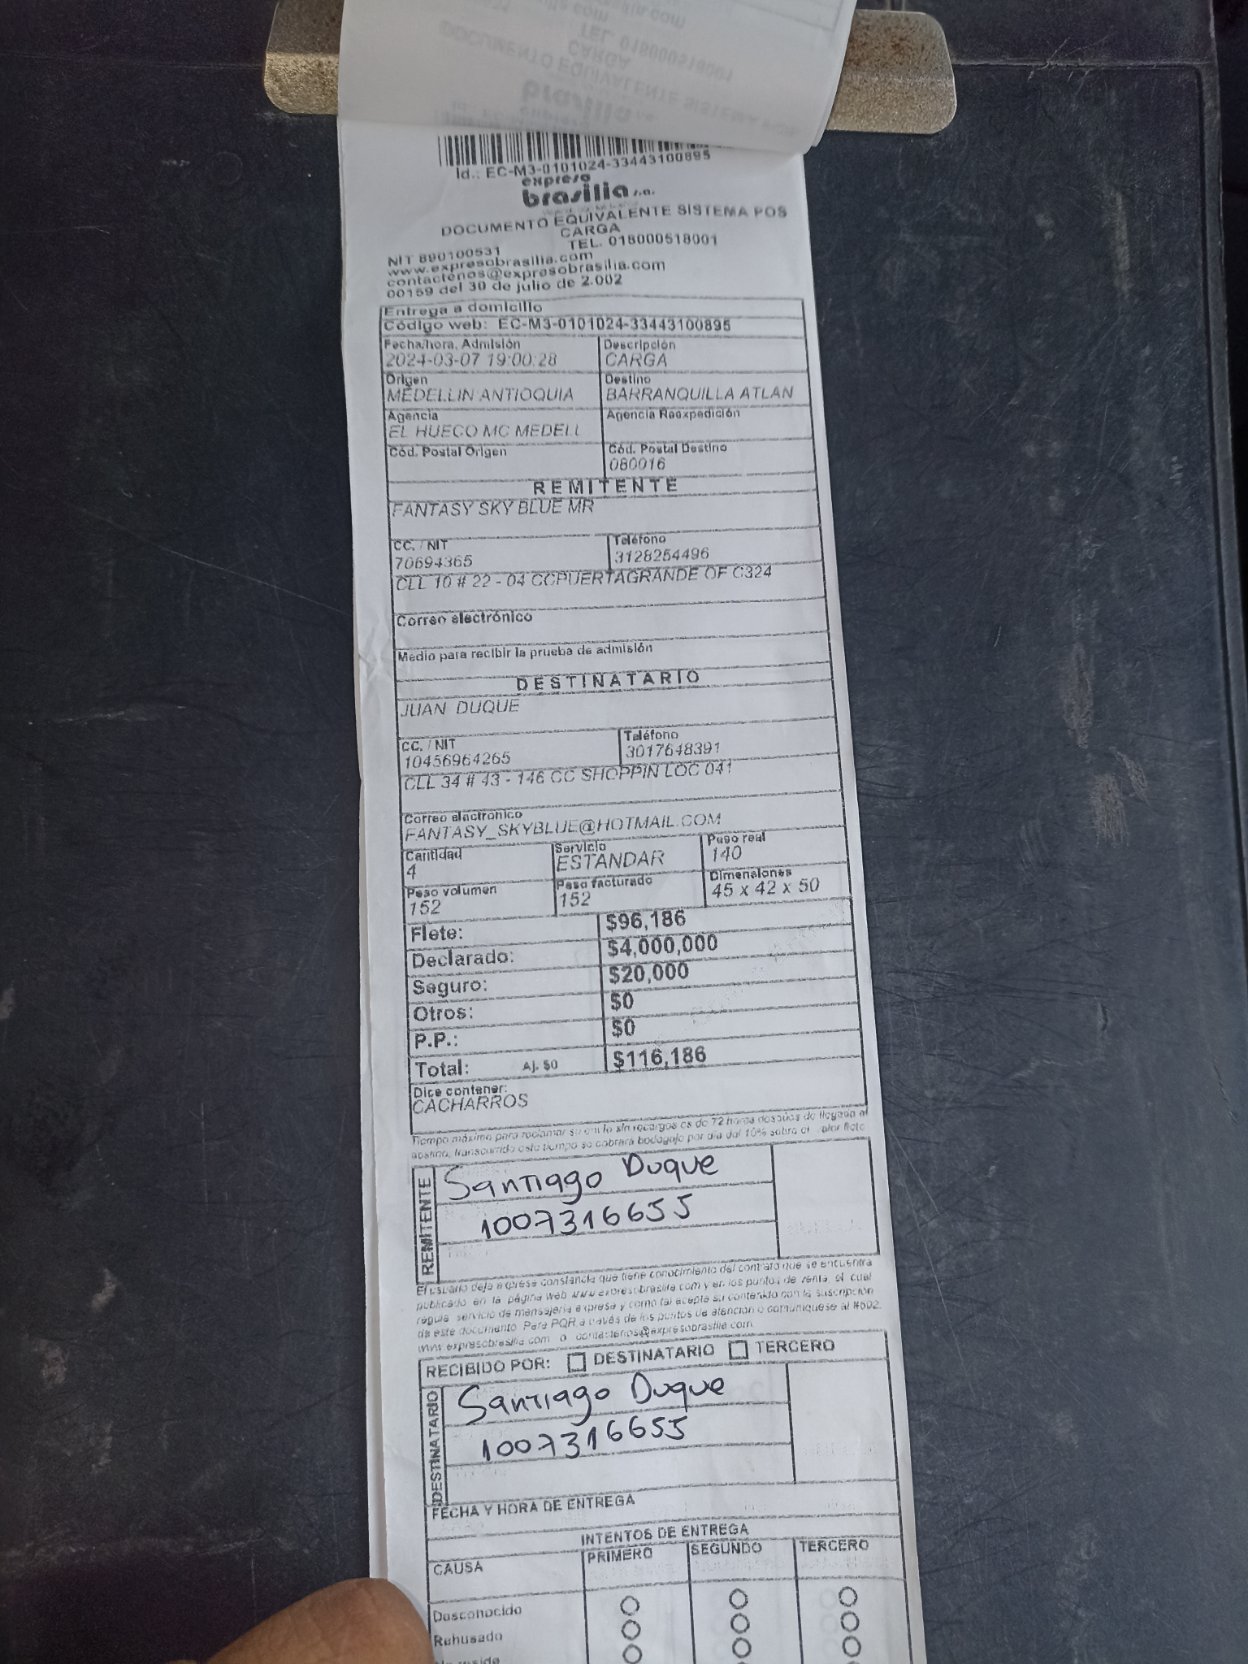 Id.: EC-M3-0101024-33443100895
expreso
brasilia s.a.
DOCUMENTO EQUIVALENTE SISTEMA POS
CARGA
NIT 890100531 TEL. 018000518001
www.expresobrasilia.com
contactenos@expresobrasilia.com
00159 del 30 de julio de 2.002
Entrega a domicilio
Código web: EC-M3-0101024-33443100895
Fecha/hora. Admisión Descripción
2024-03-07 19:00:28 CARGA
Origen Destino
MEDELLIN ANTIOQUIA BARRANQUILLA ATLAN
Agencia Agencia Reexpedición
EL HUECO MC MEDELL
Cód. Postal Origen Cód. Postal Destino
080016
REMITENTE
FANTASY SKY BLUE MR
CC. / NIT Teléfono
70694365 3128254496
CLL 10 # 22 - 04 CCPUERTAGRANDE OF C324
Correo electrónico
Medio para recibir la prueba de admisión
DESTINATARIO
JUAN DUQUE
CC. / NIT Teléfono
10456964265 3017648391
CLL 34 # 43 - 146 CC SHOPPIN LOC 041
Correo electrónico
FANTASY_SKYBLUE@HOTMAIL.COM
Cantidad Servicio Peso real
4 ESTANDAR 140
Peso volumen Peso facturado Dimensiones
152 152 45 x 42 x 50
Flete: $96,186
Declarado: $4,000,000
Seguro: $20,000
Otros: $0
P.P.: $0
Total: Aj. $0 $116,186
Dice contener:
CACHARROS
Tiempo máximo para reclamar su envío sin recargos es de 72 horas después de llegada al
destino, transcurrido este tiempo se cobrará bodegaje por día del 10% sobre el valor flete
REMITENTE
Santiago Duque
1007316655
El usuario deja expresa constancia que tiene conocimiento del contrato que se encuentra
publicado en la página web www.expresobrasilia.com y en los puntos de venta, el cual
regula servicio de mensajería expresa y como tal acepta su contenido con la suscripción
de este documento. Para PQR a través de los puntos de atención o comuníquese al #502.
www.expresobrasilia.com o contactenos@expresobrasilia.com
RECIBIDO POR: DESTINATARIO TERCERO
DESTINATARIO
Santiago Duque
1007316655
FECHA Y HORA DE ENTREGA
INTENTOS DE ENTREGA
CAUSA PRIMERO SEGUNDO TERCERO
Desconocido
Rehusado